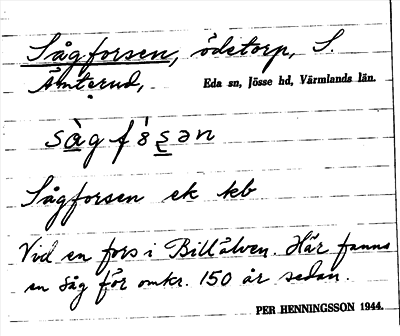 Sågforsen, ödetorp, S.
Ämterud, Eda sn, Jösse hd, Värmlands län.
Sågforsen ek kb
Vid en fors i Billälven. Här fanns
en såg för omkr. 150 år sedan.
PER HENNINGSSON 1944.